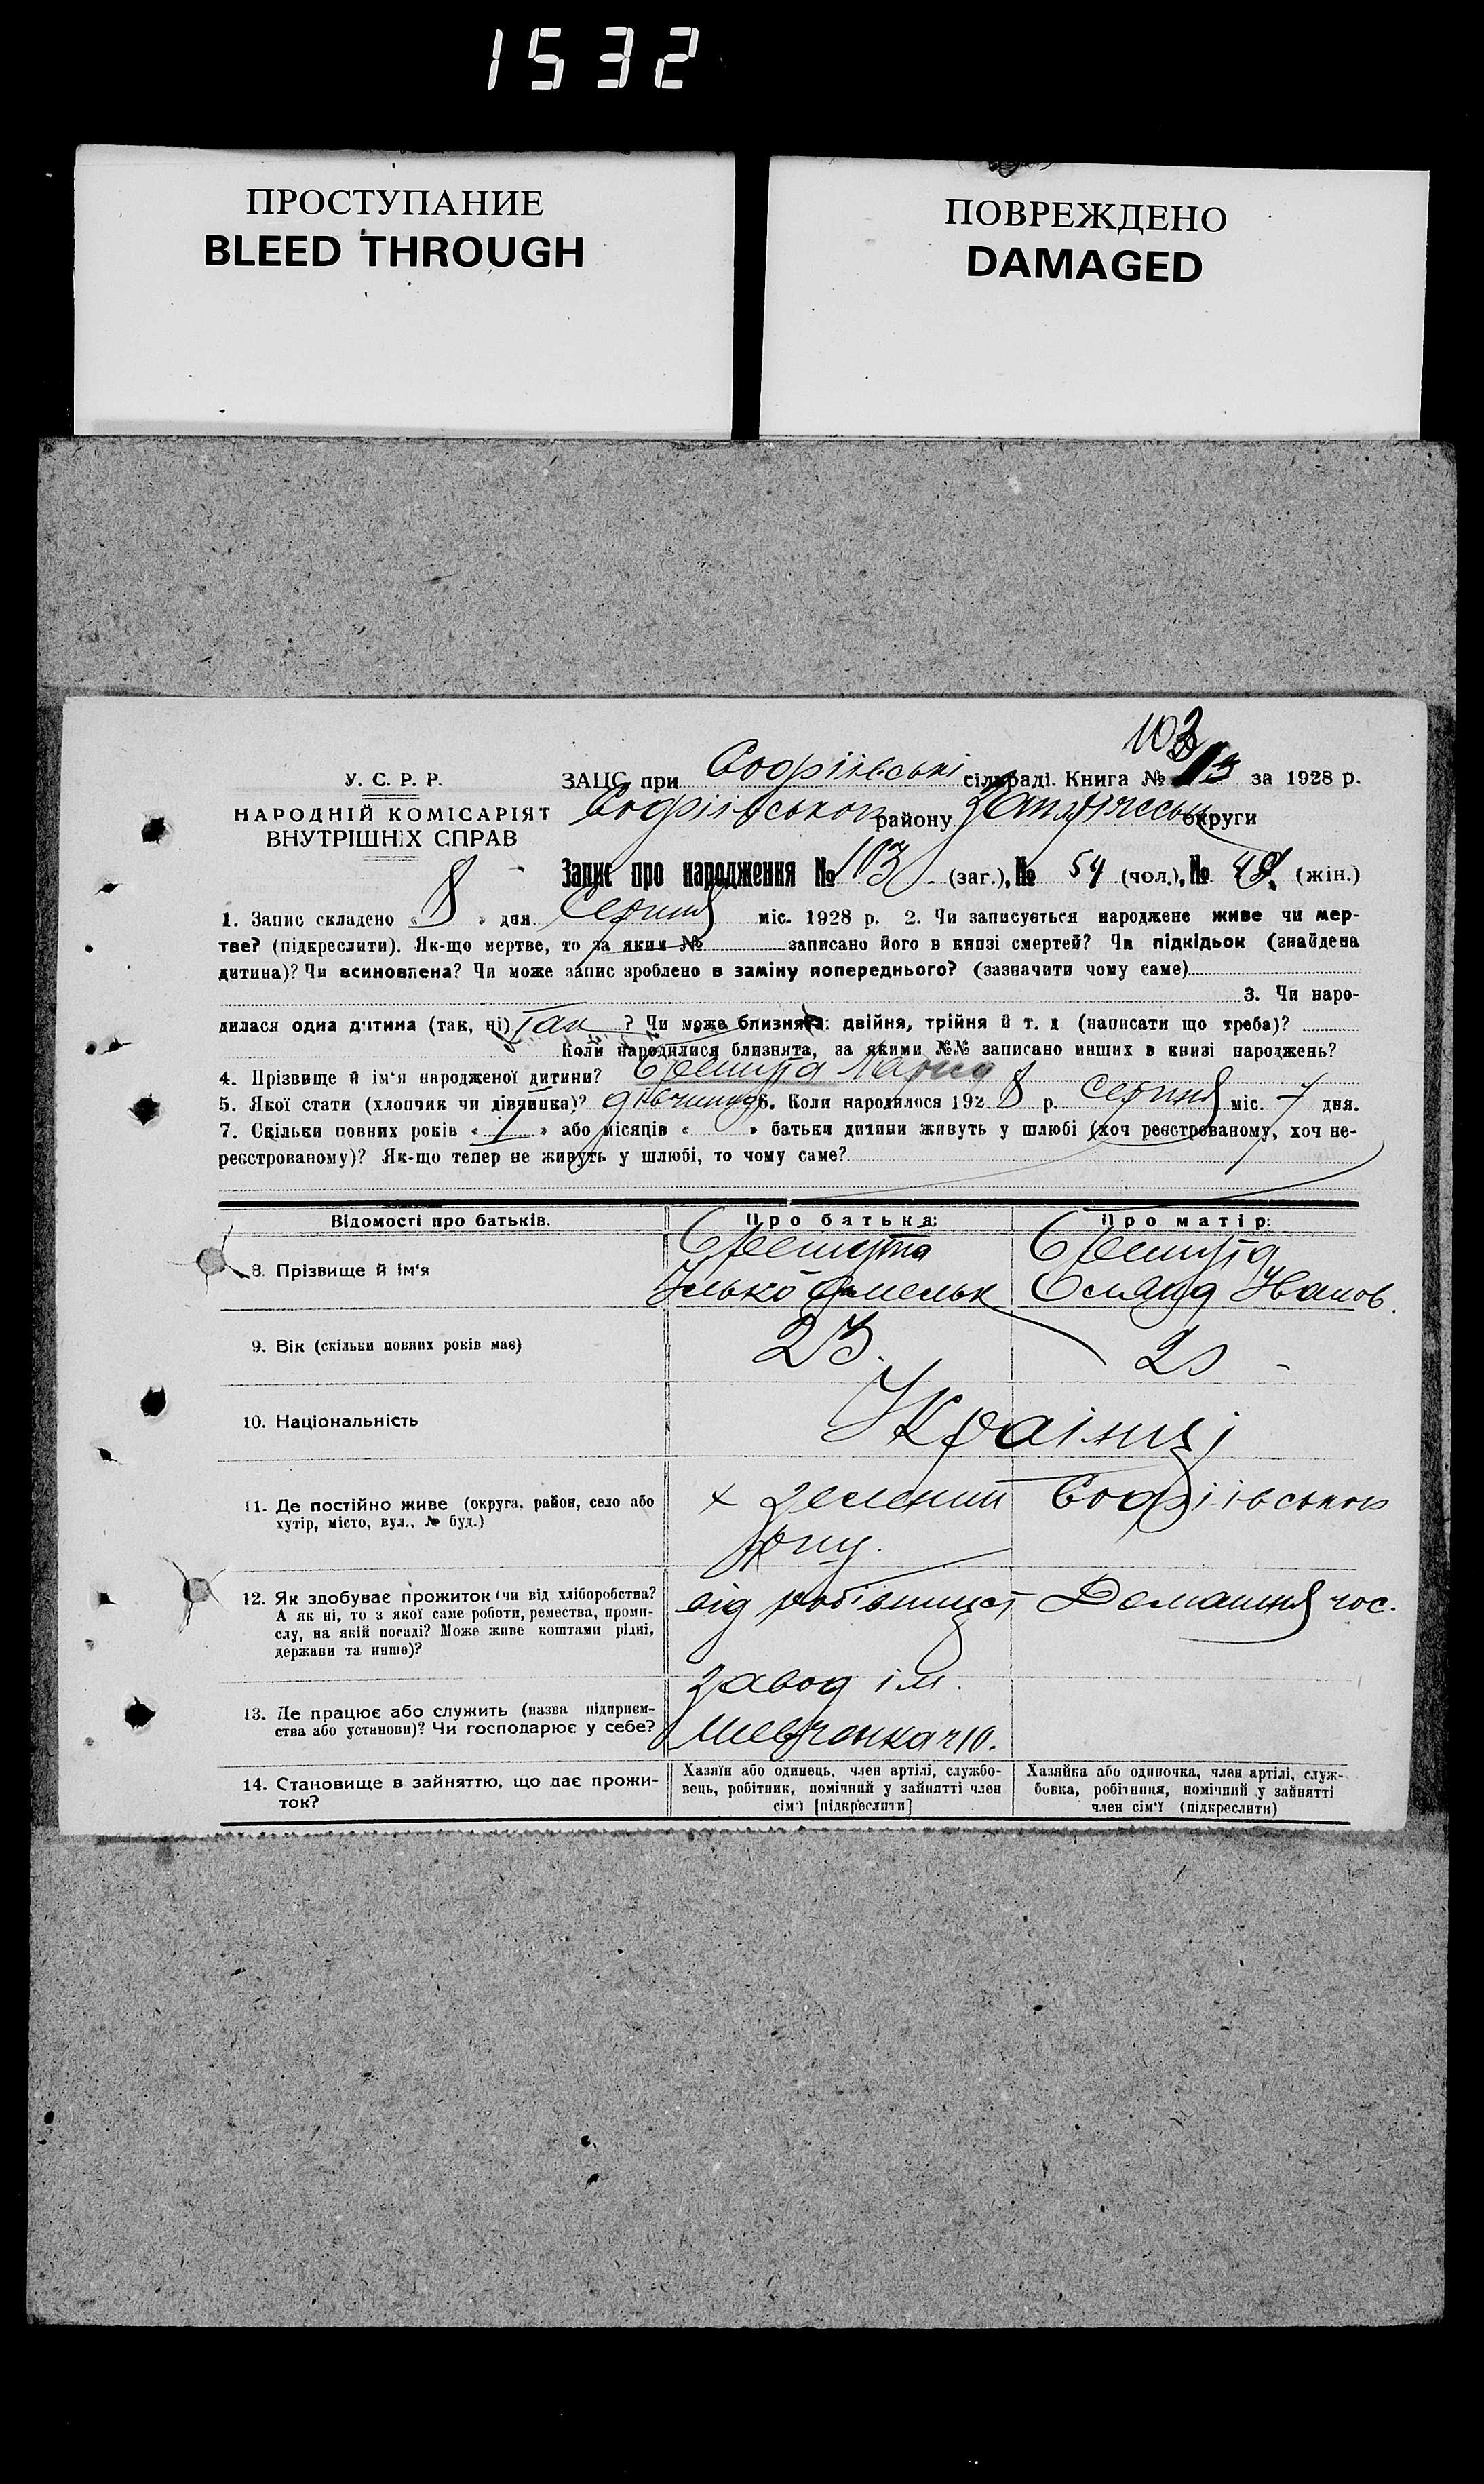 1532
ПРОСТУПАНИЕ
BLEED THROUGH
ПОВРЕЖДЕНО
DAMAGED
103
У. С. Р. Р.
НАРОДНІЙ КОМІСАРІЯТ
ВНУТРІШНІХ СПРАВ
ЗАЦС при Софіївські сільраді. Книга № 13 за 1928 р.
Софіївського району округи
Запис про народження № 103 (заг.), № 54 (чол.), № 49 (жін.)
1. Запис складено « 8 » дня Серпня міс. 1928 р. 2. Чи записується народжене живе чи мер-
тве? (підкреслити). Як-що мертве, то за яким № записано його в книзі смертей? Чи підкідьок (знайдена
дитина)? Чи всиновлена? Чи може запис зроблено в заміну попереднього? (зазначити чому саме)
3. Чи наро-
дилася одна дитина (так, ні) Так ? Чи може близнята: двійня, трійня й т. д (написати що треба)?
Коли народилися близнята, за якими №№ записано инших в книзі народжень?
4. Прізвище й ім'я народженої дитини?
5. Якої стати (хлопчик чи дівчинка)? дівчинка 6. Коли народилося 192 8 р. Серпня міс. 7 дня.
7. Скільки повних років « 1 » або місяців « » батьки дитини живуть у шлюбі (хоч реєстрованому, хоч не-
реєстрованому)? Як-що тепер не живуть у шлюбі, то чому саме?
Відомості про батьків.
Про батька:
Про матір:
8. Прізвище й ім'я
Ілько Омельк
Іванов.
9. Вік (скільки повних років має)
23.
10. Національність
Українці
11. Де постійно живе (округа, район, село або
хутір, місто, вул., № буд.)
х Зелений Софіївського
р-ну.
12. Як здобуває прожиток (чи від хліборобства?
А як ні, то з якої саме роботи, ремества, проми-
слу, на якій посаді? Може живе коштами рідні,
держави та инше)?
від
Домашня гос.
13. Де працює або служить (назва підприєм-
ства або установи)? Чи господарює у себе?
завод ім.
Шевченка
14. Становище в зайняттю, що дає прожи-
ток?
Хазяїн або одинець, член артілі, службо-
вець, робітник, помічний у зайнятті член
сім'ї [підкреслити]
Хазяйка або одиночка, член артілі, служ-
бовка, робітниця, помічний у зайнятті
член сім'ї (підкреслити)